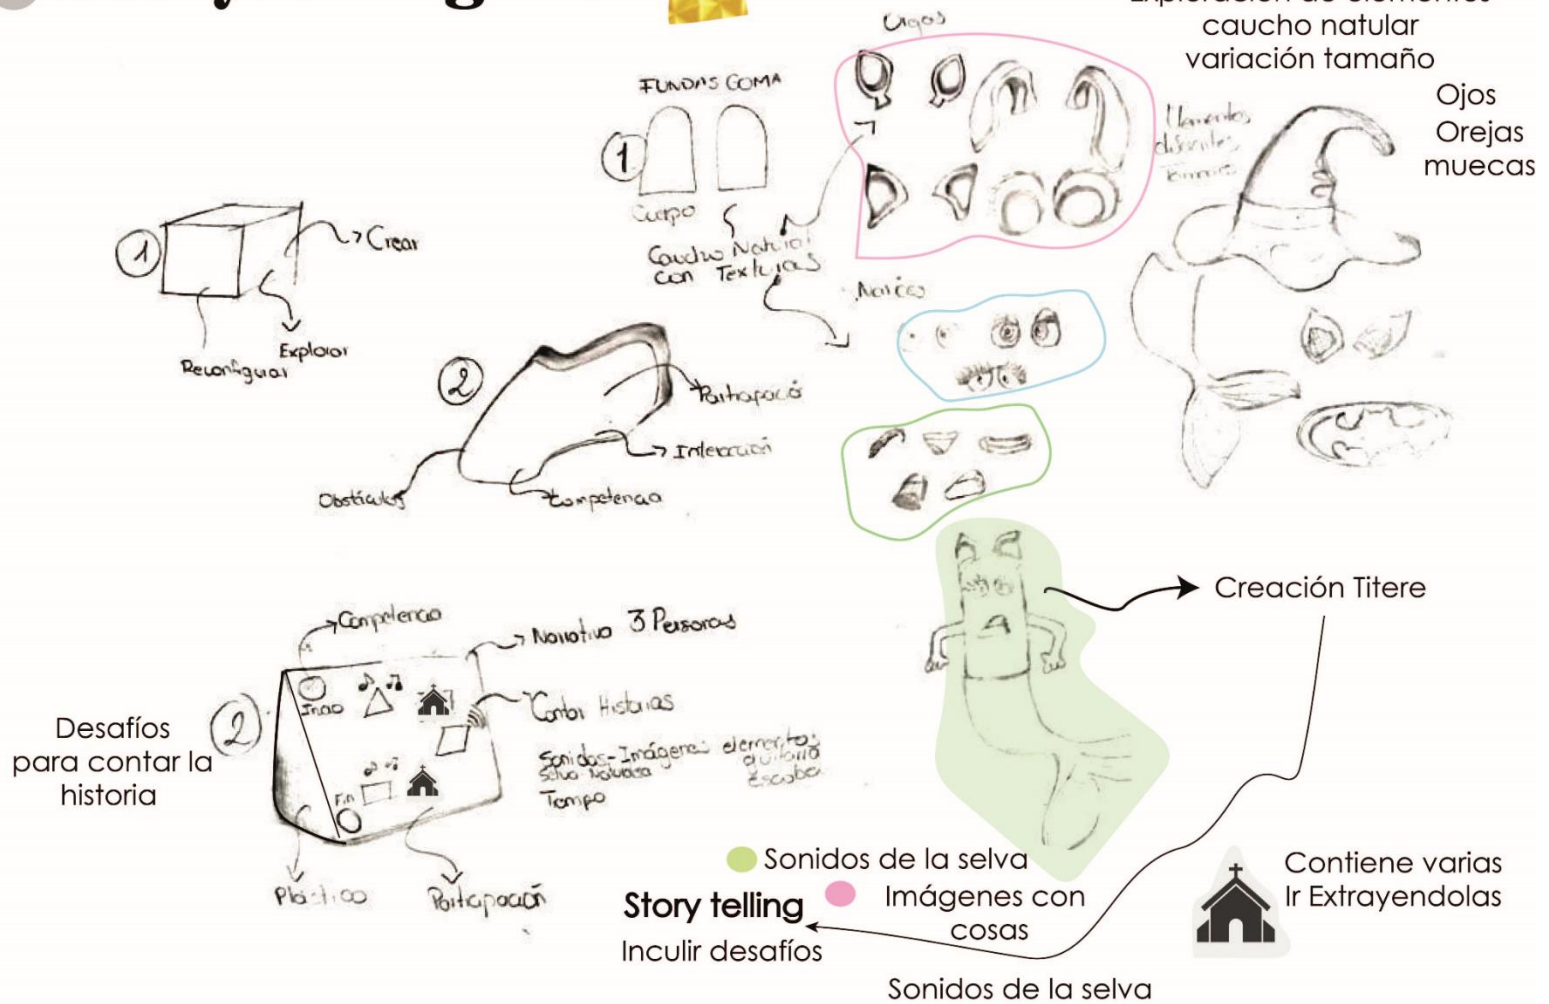 caucho natural
variación tamaño
Ojos
Orejas
muecas
FUNDAS GOMA
1
Cuerpo
Caucho Natural
con Texturas
Elementos
diferentes
Tamaños
Narices
1
Crear
Explorar
Reconfigurar
2
Participació
Interacción
Competencia
Obstáculos
Creación Titere
Competencia
Narrativa 3 Personas
Contar Historias
Sonidos-Imágenes elementos
guitarra
Selva
Escoba
Tiempo
Inicio
Fin
2
Desafíos
para contar la
historia
Plástico
Participación
Sonidos de la selva
Imágenes con
cosas
Story telling
Inculir desafíos
Sonidos de la selva
Contiene varias
Ir Extrayendolas